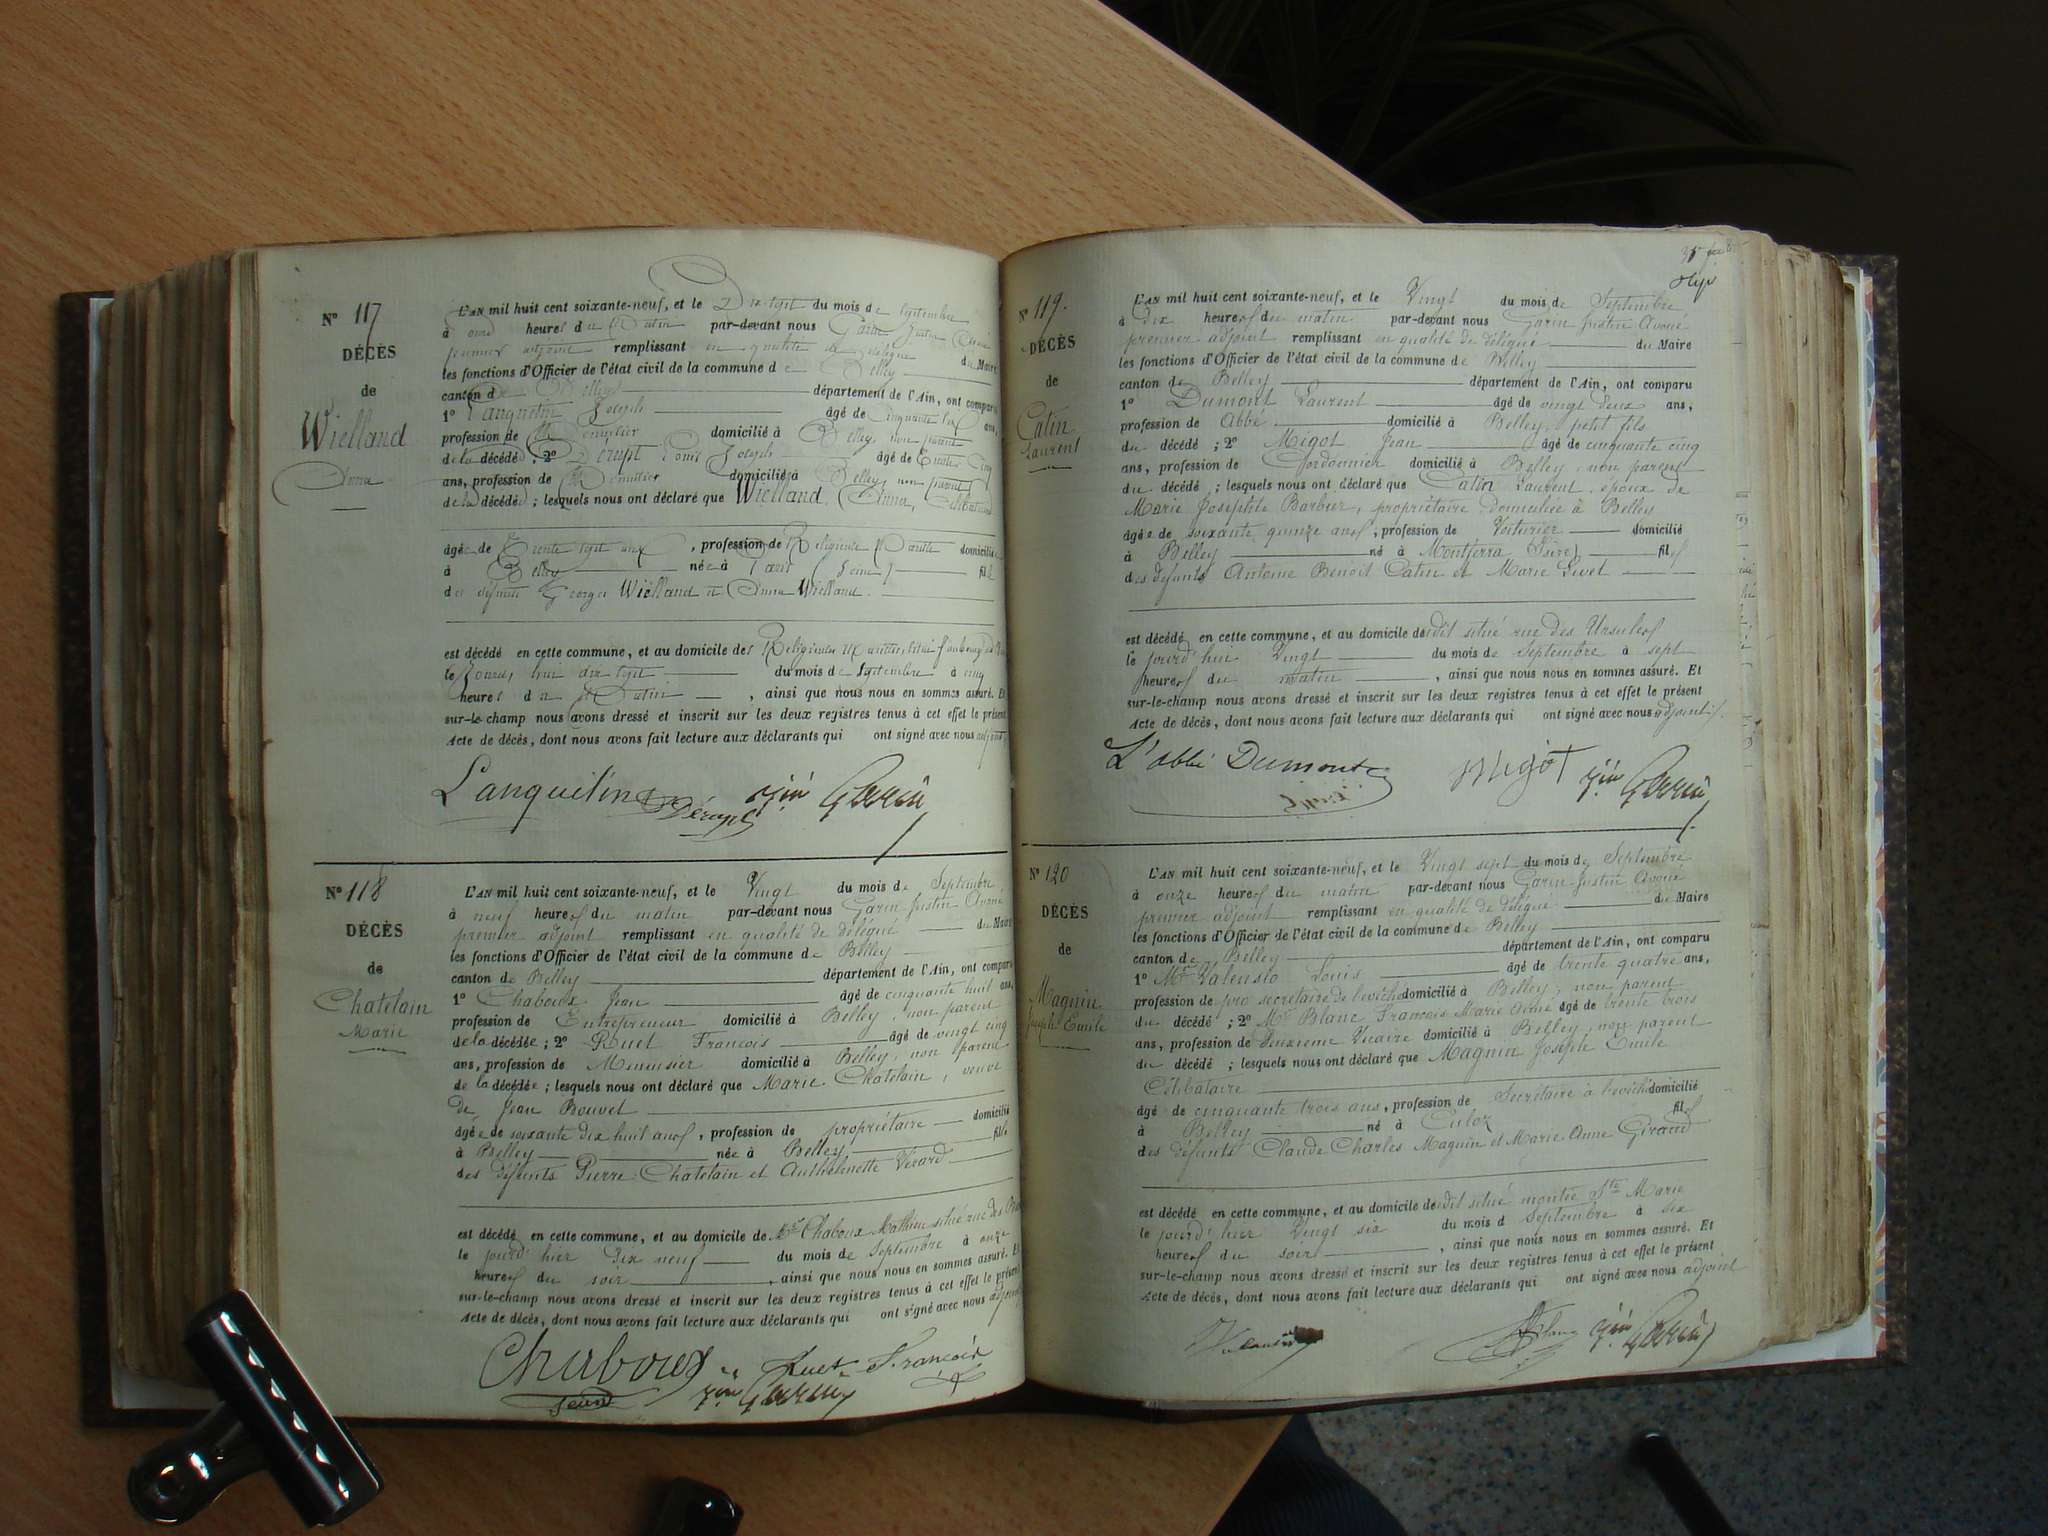 N° 117
DÉCÈS
de
Wielland
Anna
L'AN mil huit cent soixante-neuf, et le Dix sept du mois de septembre
à onze heures du Matin par-devant nous Garin Justin Avoué
premier adjoint remplissant en qualité de délégué du Maire
les fonctions d'Officier de l'état civil de la commune de Belley
canton de Belley département de l'Ain, ont comparu
1° Lanquetin Joseph âgé de cinquante six ans,
profession de Menuisier domicilié à Belley, non parent
de la décédée ; 2° Joseph âgé de trente cinq
ans, profession de domicilié à Belley non parent
de la décédée ; lesquels nous ont déclaré que Wielland Anna, Célibataire
âgée de Trente sept ans, profession de Religieuse Mariste domiciliée
à Belley née à Paris (Seine) fille
des défunts Georges Wielland et Anna Wielland.
est décédée en cette commune, et au domicile des Religieuses Maristes,
le jourd'hui dix sept du mois de septembre à cinq
heures du Matin, ainsi que nous nous en sommes assuré. Et
sur-le-champ nous avons dressé et inscrit sur les deux registres tenus à cet effet le présent
Acte de décès, dont nous avons fait lecture aux déclarants qui ont signé avec nous adjoint.
Lanquetin
Garin
N° 118
DÉCÈS
de
Chatelain
Marie
L'AN mil huit cent soixante-neuf, et le Vingt du mois de Septembre
à neuf heures du matin par-devant nous Garin Justin Avoué
premier adjoint remplissant en qualité de délégué du Maire
les fonctions d'Officier de l'état civil de la commune de Belley
canton de Belley département de l'Ain, ont comparu
1° Chaboux Jean âgé de cinquante huit ans,
profession de Entrepreneur domicilié à Belley, non parent
de la décédée ; 2° Ruet François âgé de vingt cinq
ans, profession de Menuisier domicilié à Belley, non parent
de la décédée ; lesquels nous ont déclaré que Marie Chatelain, veuve
de Jean Bouvet
âgée de soixante dix huit ans, profession de propriétaire domiciliée
à Belley née à Belley fille
des défunts Pierre Chatelain et Anthelmette Vérard
est décédée en cette commune, et au domicile de Mr Chaboux Mathieu situé rue des
le jourd'hier Dix neuf du mois de septembre à onze
heures du soir, ainsi que nous nous en sommes assuré. Et
sur-le-champ nous avons dressé et inscrit sur les deux registres tenus à cet effet le présent
Acte de décès, dont nous avons fait lecture aux déclarants qui ont signé avec nous adjoint
Chaboux Ruet François
Jean Garin
N° 119.
DÉCÈS
de
Catin
Laurent
L'AN mil huit cent soixante-neuf, et le Vingt du mois de Septembre
à dix heures du matin par-devant nous Garin Justin Avoué
premier adjoint remplissant en qualité de délégué du Maire
les fonctions d'Officier de l'état civil de la commune de Belley
canton de Belley département de l'Ain, ont comparu
1° Dumont Laurent âgé de vingt deux ans,
profession de Abbé domicilié à Belley, petit fils
du décédé ; 2° Migot Jean âgé de cinquante cinq
ans, profession de Cordonnier domicilié à Belley, non parent
du décédé ; lesquels nous ont déclaré que Catin Laurent, époux de
Marie Josephte Barbier, propriétaire domiciliée à Belley
âgé de soixante quinze ans, profession de Voiturier domicilié
à Belley né à Montferra (Isère) fils
des défunts Antoine Benoît Catin et Marie Livet
est décédé en cette commune, et au domicile dudit situé rue des Ursules
le jourd'hui Vingt du mois de septembre à sept
heures du matin, ainsi que nous nous en sommes assuré. Et
sur-le-champ nous avons dressé et inscrit sur les deux registres tenus à cet effet le présent
Acte de décès, dont nous avons fait lecture aux déclarants qui ont signé avec nous adjoint.
L'abbé Dumont Migot Garin
N° 120
DÉCÈS
de
Magnin
Joseph Emile
L'AN mil huit cent soixante-neuf, et le Vingt sept du mois de Septembre
à onze heures du matin par-devant nous Garin Justin Avoué
premier adjoint remplissant en qualité de délégué du Maire
les fonctions d'Officier de l'état civil de la commune de Belley
canton de Belley département de l'Ain, ont comparu
1° Mr Valensio Louis âgé de trente quatre ans,
profession de pro secrétaire de l'evêché domicilié à Belley, non parent
du décédé ; 2° Mr Blanc François Marie Aimé âgé de trente trois
ans, profession de Deuxième Vicaire domicilié à Belley, non parent
du décédé ; lesquels nous ont déclaré que Magnin Joseph Emile
Célibataire
âgé de cinquante trois ans, profession de Secrétaire à l'evêché domicilié
à Belley né à Culoz fils
des défunts Claude Charles Magnin et Marie Anne Girand
est décédé en cette commune, et au domicile dudit situé montée Ste Marie
le jourd'hier Vingt six du mois d septembre à six
heures du soir, ainsi que nous nous en sommes assuré. Et
sur-le-champ nous avons dressé et inscrit sur les deux registres tenus à cet effet le présent
Acte de décès, dont nous avons fait lecture aux déclarants qui ont signé avec nous adjoint
Blanc Garin